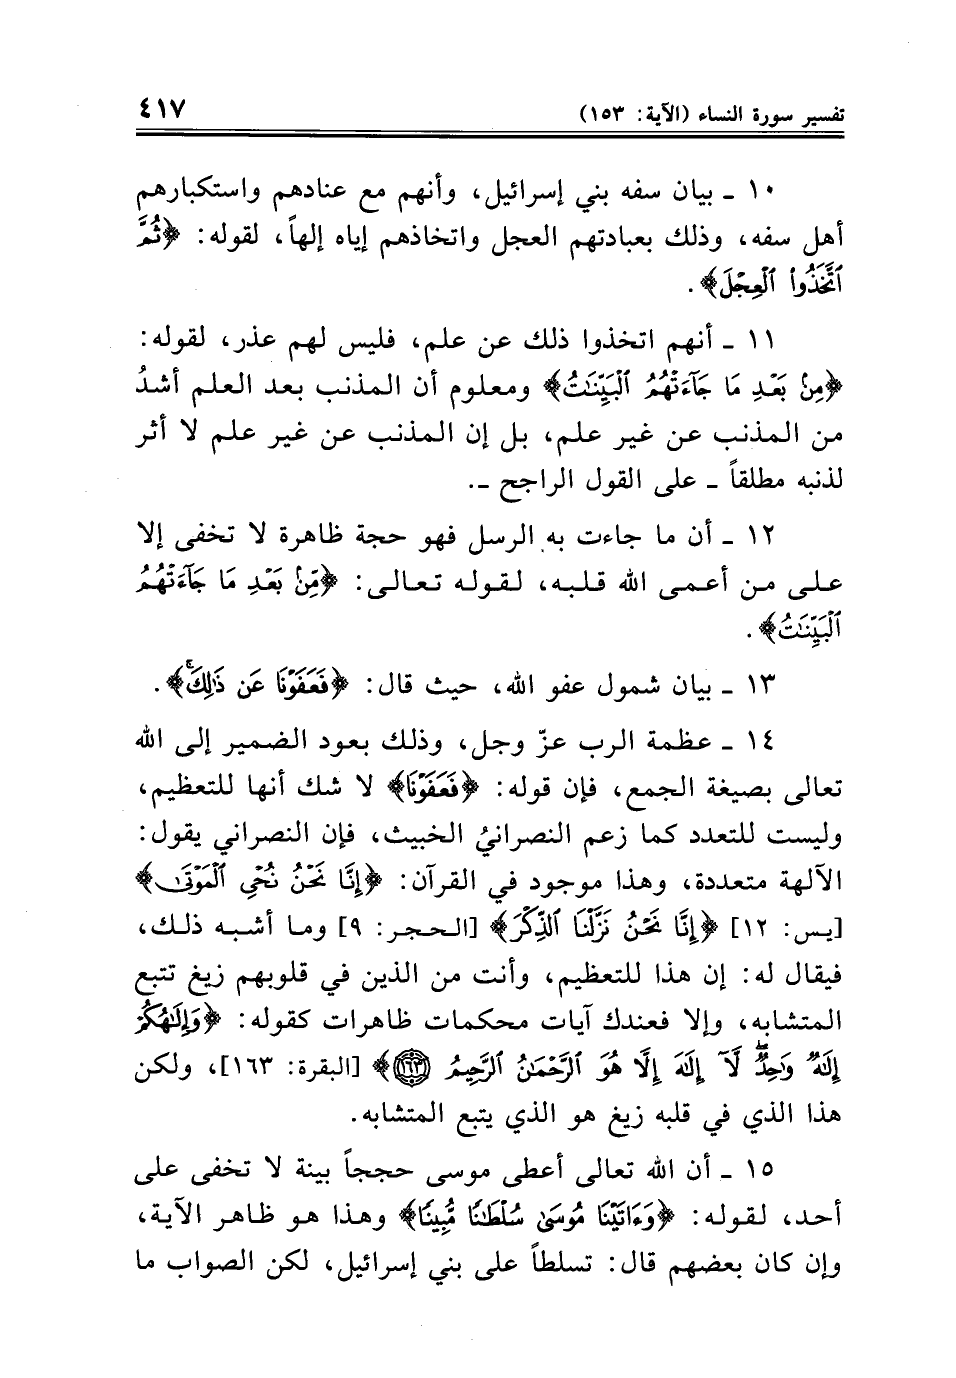 تفسير سورة النساء (الآية: ١٥٣)
٤١٧
١٠ ـ بيان سفه بني إسرائيل، وأنهم مع عنادهم واستكبارهم
أهل سفه، وذلك بعبادتهم العجل واتخاذهم إياه إلهاً، لقوله: ﴿ثُمَّ
ٱتَّخَذُوا۟ ٱلْعِجْلَ﴾.
١١ ـ أنهم اتخذوا ذلك عن علم، فليس لهم عذر، لقوله:
﴿مِنۢ بَعْدِ مَا جَآءَتْهُمُ ٱلْبَيِّنَٰتُ﴾ ومعلوم أن المذنب بعد العلم أشدُ
من المذنب عن غير علم، بل إن المذنب عن غير علم لا أثر
لذنبه مطلقاً ـ على القول الراجح ـ.
١٢ ـ أن ما جاءت به الرسل فهو حجة ظاهرة لا تخفى إلا
على من أعمى الله قلبه، لقوله تعالى: ﴿مِّنۢ بَعْدِ مَا جَآءَتْهُمُ
ٱلْبَيِّنَٰتُ﴾.
١٣ ـ بيان شمول عفو الله، حيث قال: ﴿فَعَفَوْنَا عَن ذَٰلِكَ ۚ﴾.
١٤ ـ عظمة الرب عزّ وجل، وذلك بعود الضمير إلى الله
تعالى بصيغة الجمع، فإن قوله: ﴿فَعَفَوْنَا﴾ لا شك أنها للتعظيم،
وليست للتعدد كما زعم النصرانيُ الخبيث، فإن النصراني يقول:
الآلهة متعددة، وهذا موجود في القرآن: ﴿إِنَّا نَحْنُ نُحْىِ ٱلْمَوْتَىٰ﴾
[يس: ١٢] ﴿إِنَّا نَحْنُ نَزَّلْنَا ٱلذِّكْرَ﴾ [الحجر: ٩] وما أشبه ذلك،
فيقال له: إن هذا للتعظيم، وأنت من الذين في قلوبهم زيغ تتبع
المتشابه، وإلا فعندك آيات محكمات ظاهرات كقوله: ﴿وَإِلَٰهُكُمْ
إِلَٰهٌ وَٰحِدٌ ۖ لَّآ إِلَٰهَ إِلَّا هُوَ ٱلرَّحْمَٰنُ ٱلرَّحِيمُ ۝١٦٣﴾ [البقرة: ١٦٣]، ولكن
هذا الذي في قلبه زيغ هو الذي يتبع المتشابه.
١٥ ـ أن الله تعالى أعطى موسى حججاً بينة لا تخفى على
أحد، لقوله: ﴿وَءَاتَيْنَا مُوسَىٰ سُلْطَٰنًا مُّبِينًا﴾ وهذا هو ظاهر الآية،
وإن كان بعضهم قال: تسلطاً على بني إسرائيل، لكن الصواب ما